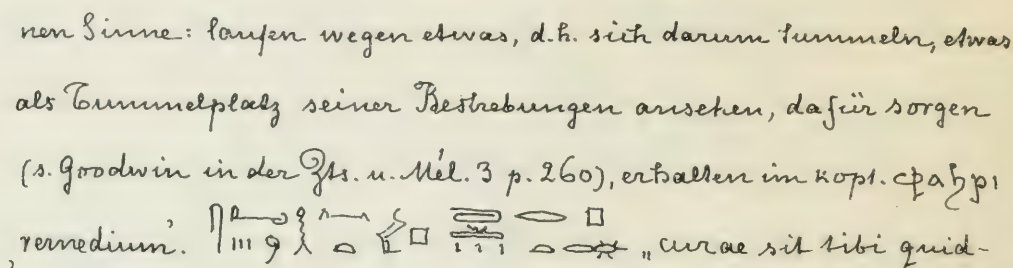 nen Sinne: laufen wegen etwas, d.h. sich darum tummeln, etwas
als Tummelplatz seiner Bestrebungen ansehen, dafür sorgen
(s. Goodwin in der Zts. u. Mél. 3 p. 260), erhalten im kopt. ⲫⲁϧⲣⲓ
‚remedium’. „curae sit tibi quid-